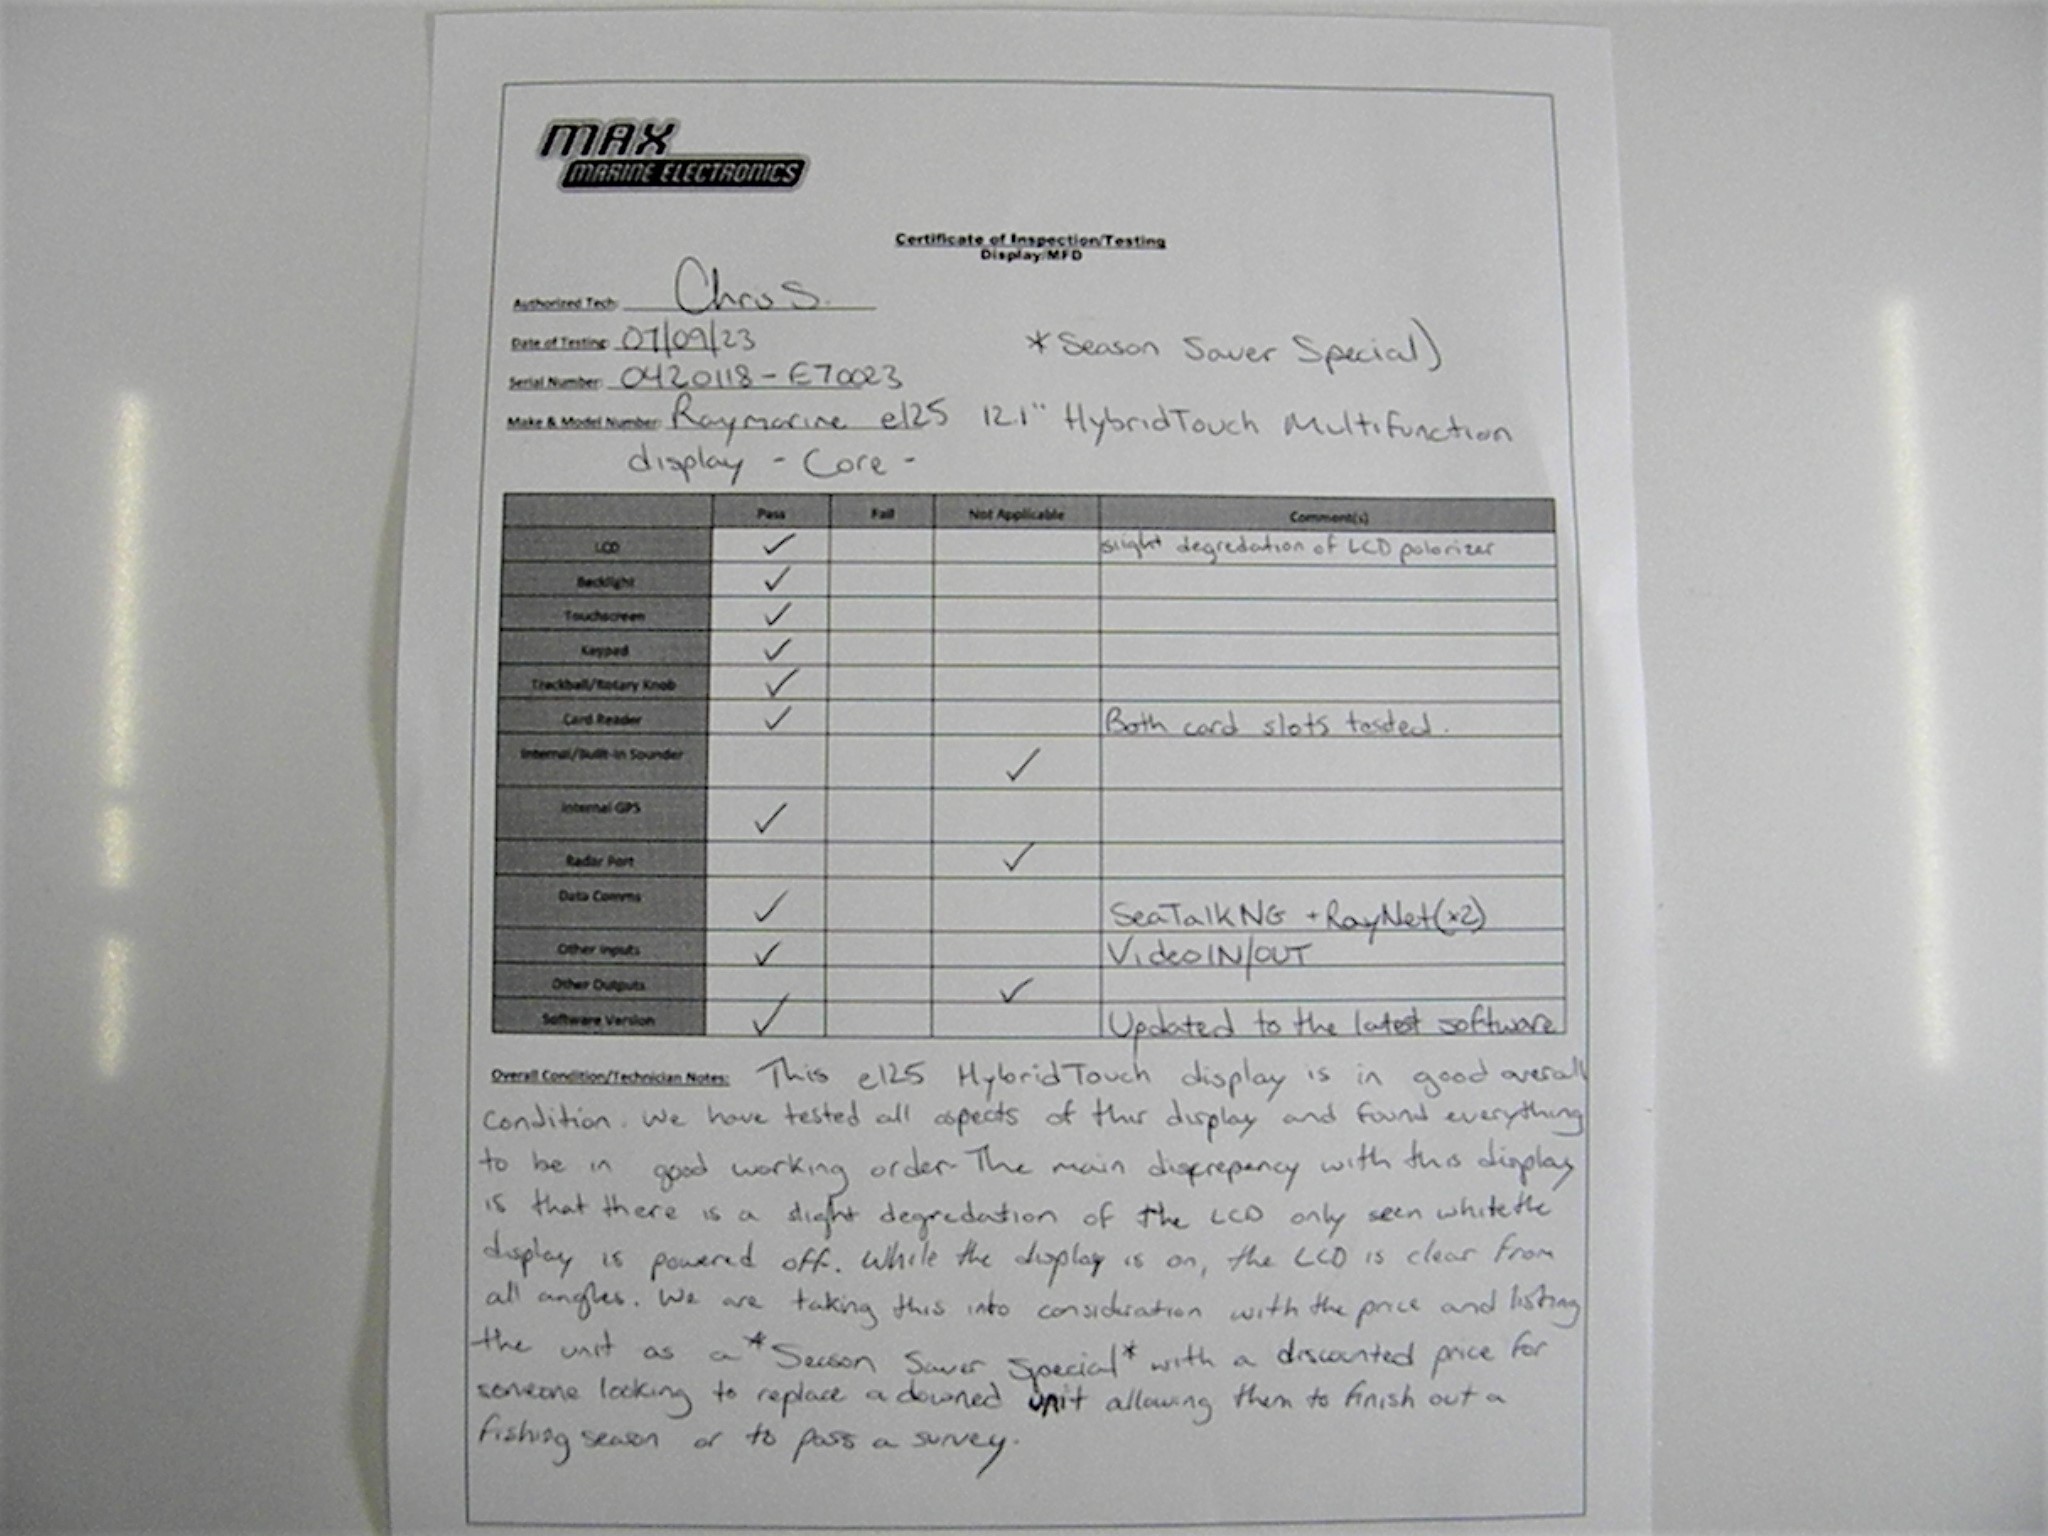 MAX
MARINE ELECTRONICS
Certificate of Inspection/Testing
Display/MFD
Authorized Tech: Chris S.
Date of Testing: 07/09/23
*Season Saver Special)
Serial Number: 0420118-E70023
Make & Model Number: Raymarine e125 12.1" HybridTouch Multifunction
display - Core -
Pass Fail Not Applicable Comment(s)
LCD ✓ slight degredation of LCD polarizer
Backlight ✓
Touchscreen ✓
Keypad ✓
Trackball/Rotary Knob ✓
Card Reader ✓ Both card slots tested.
Internal/Built-In Sounder ✓
Internal GPS ✓
Radar Port ✓
Data Comms ✓ SeaTalkNG + RayNet(x2)
Other Inputs ✓ VideoIN/OUT
Other Outputs ✓
Software Version ✓ Updated to the latest software
Overall Condition/Technician Notes: This e125 HybridTouch display is in good overall
condition. We have tested all aspects of this display and found everything
to be in good working order. The main discrepency with this display
is that there is a slight degredation of the LCD only seen while the
display is powered off. While the display is on, the LCD is clear from
all angles. We are taking this into consideration with the price and listing
the unit as a *Season Saver Special* with a discounted price for
someone looking to replace a downed unit allowing them to finish out a
fishing season or to pass a survey.